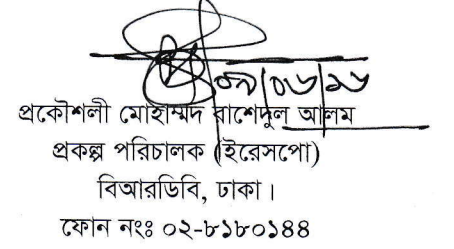 ০৯/০৬/১৬
প্রকৌশলী মোহাম্মদ রাশেদুল আলম
প্রকল্প পরিচালক (ইরেসপো)
বিআরডিবি, ঢাকা।
ফোন নংঃ ০২-৮১৮০১৪৪